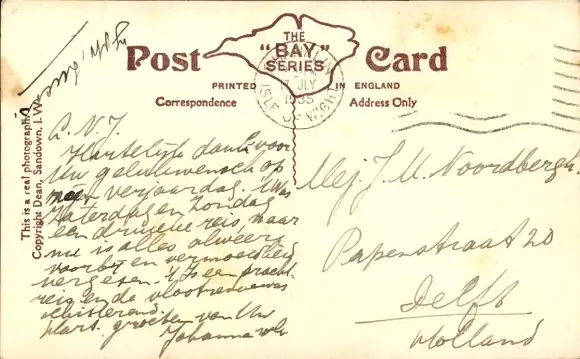 Post
THE
"BAY"
SERIES
Card
PRINTED
IN ENGLAND
Correspondence
Address Only
JLY
1935
ISLE OF WIGHT
This is a real photograph
Copyright Dean, Sandown, I.W.
L. N. J.
Hartelijk dank voor
Uw gelukwensch op
mijn verjaardag. 't Was
Zaterdag en Zondag
een drukke reis, maar
nu is alles alweer
voorbij en vermoeidheid
vergeten. 't Is een pracht
reis en de vlootrevue was
schitterend.
Hart. groeten van Uw
Johanna
Mej. J. M. Noordbergh.
Papenstraat 20
Delft
Holland